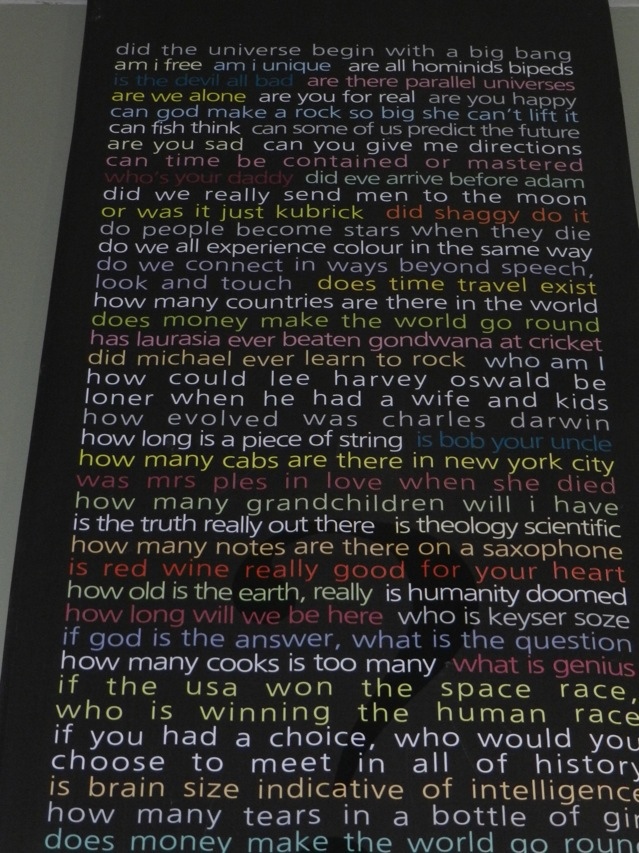 did the universe begin with a big bang
am i free am i unique are all hominids bipeds
is the devil all bad are there parallel universes
are we alone are you for real are you happy
can god make a rock so big she can't lift it
can fish think can some of us predict the future
are you sad can you give me directions
can time be contained or mastered
who's your daddy did eve arrive before adam
did we really send men to the moon
or was it just kubrick did shaggy do it
do people become stars when they die
do we all experience colour in the same way
do we connect in ways beyond speech,
look and touch does time travel exist
how many countries are there in the world
does money make the world go round
has laurasia ever beaten gondwana at cricket
did michael ever learn to rock who am I
how could lee harvey oswald be
loner when he had a wife and kids
how evolved was charles darwin
how long is a piece of string is bob your uncle
how many cabs are there in new york city
was mrs ples in love when she died
how many grandchildren will i have
is the truth really out there is theology scientific
how many notes are there on a saxophone
is red wine really good for your heart
how old is the earth, really is humanity doomed
how long will we be here who is keyser soze
if god is the answer, what is the question
how many cooks is too many what is genius
if the usa won the space race,
who is winning the human race
if you had a choice, who would you
choose to meet in all of history
is brain size indicative of intelligence
how many tears in a bottle of gin
does money make the world go roun